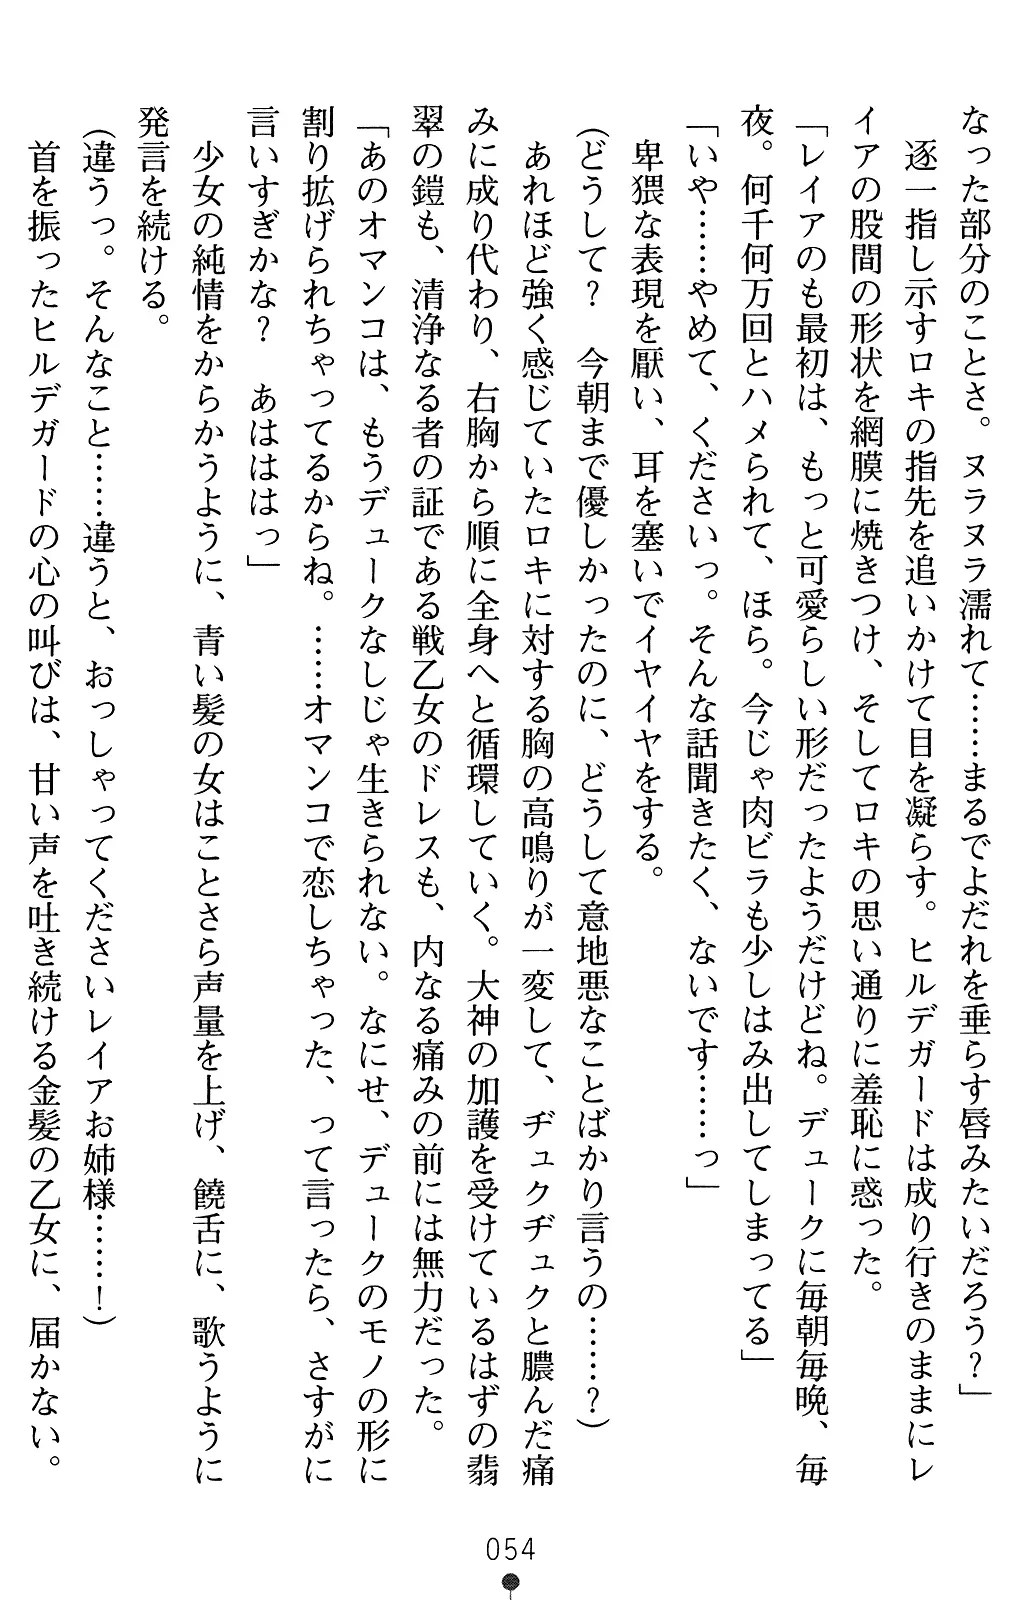 なった部分のことさ。ヌラヌラ濡れて……まるでよだれを垂らす唇みたいだろう？」
逐一指し示すロキの指先を追いかけて目を凝らす。ヒルデガードは成り行きのままにレ
イアの股間の形状を網膜に焼きつけ、そしてロキの思い通りに羞恥に惑った。
「レイアのも最初は、もっと可愛らしい形だったようだけどね。デュークに毎朝毎晩、毎
夜。何千何万回とハメられて、ほら。今じゃ肉ビラも少しはみ出してしまってる」
「いや……やめて、くださいっ。そんな話聞きたく、ないです……っ」
卑猥な表現を厭い、耳を塞いでイヤイヤをする。
（どうして？　今朝まで優しかったのに、どうして意地悪なことばかり言うの……？）
あれほど強く感じていたロキに対する胸の高鳴りが一変して、ヂュクヂュクと膿んだ痛
みに成り代わり、右胸から順に全身へと循環していく。大神の加護を受けているはずの翡
翠の鎧も、清浄なる者の証である戦乙女のドレスも、内なる痛みの前には無力だった。
「あのオマンコは、もうデュークなしじゃ生きられない。なにせ、デュークのモノの形に
割り拡げられちゃってるからね。……オマンコで恋しちゃった、って言ったら、さすがに
言いすぎかな？　あはははっ」
少女の純情をからかうように、青い髪の女はことさら声量を上げ、饒舌に、歌うように
発言を続ける。
（違うっ。そんなこと……違うと、おっしゃってくださいレイアお姉様……！）
首を振ったヒルデガードの心の叫びは、甘い声を吐き続ける金髪の乙女に、届かない。
054